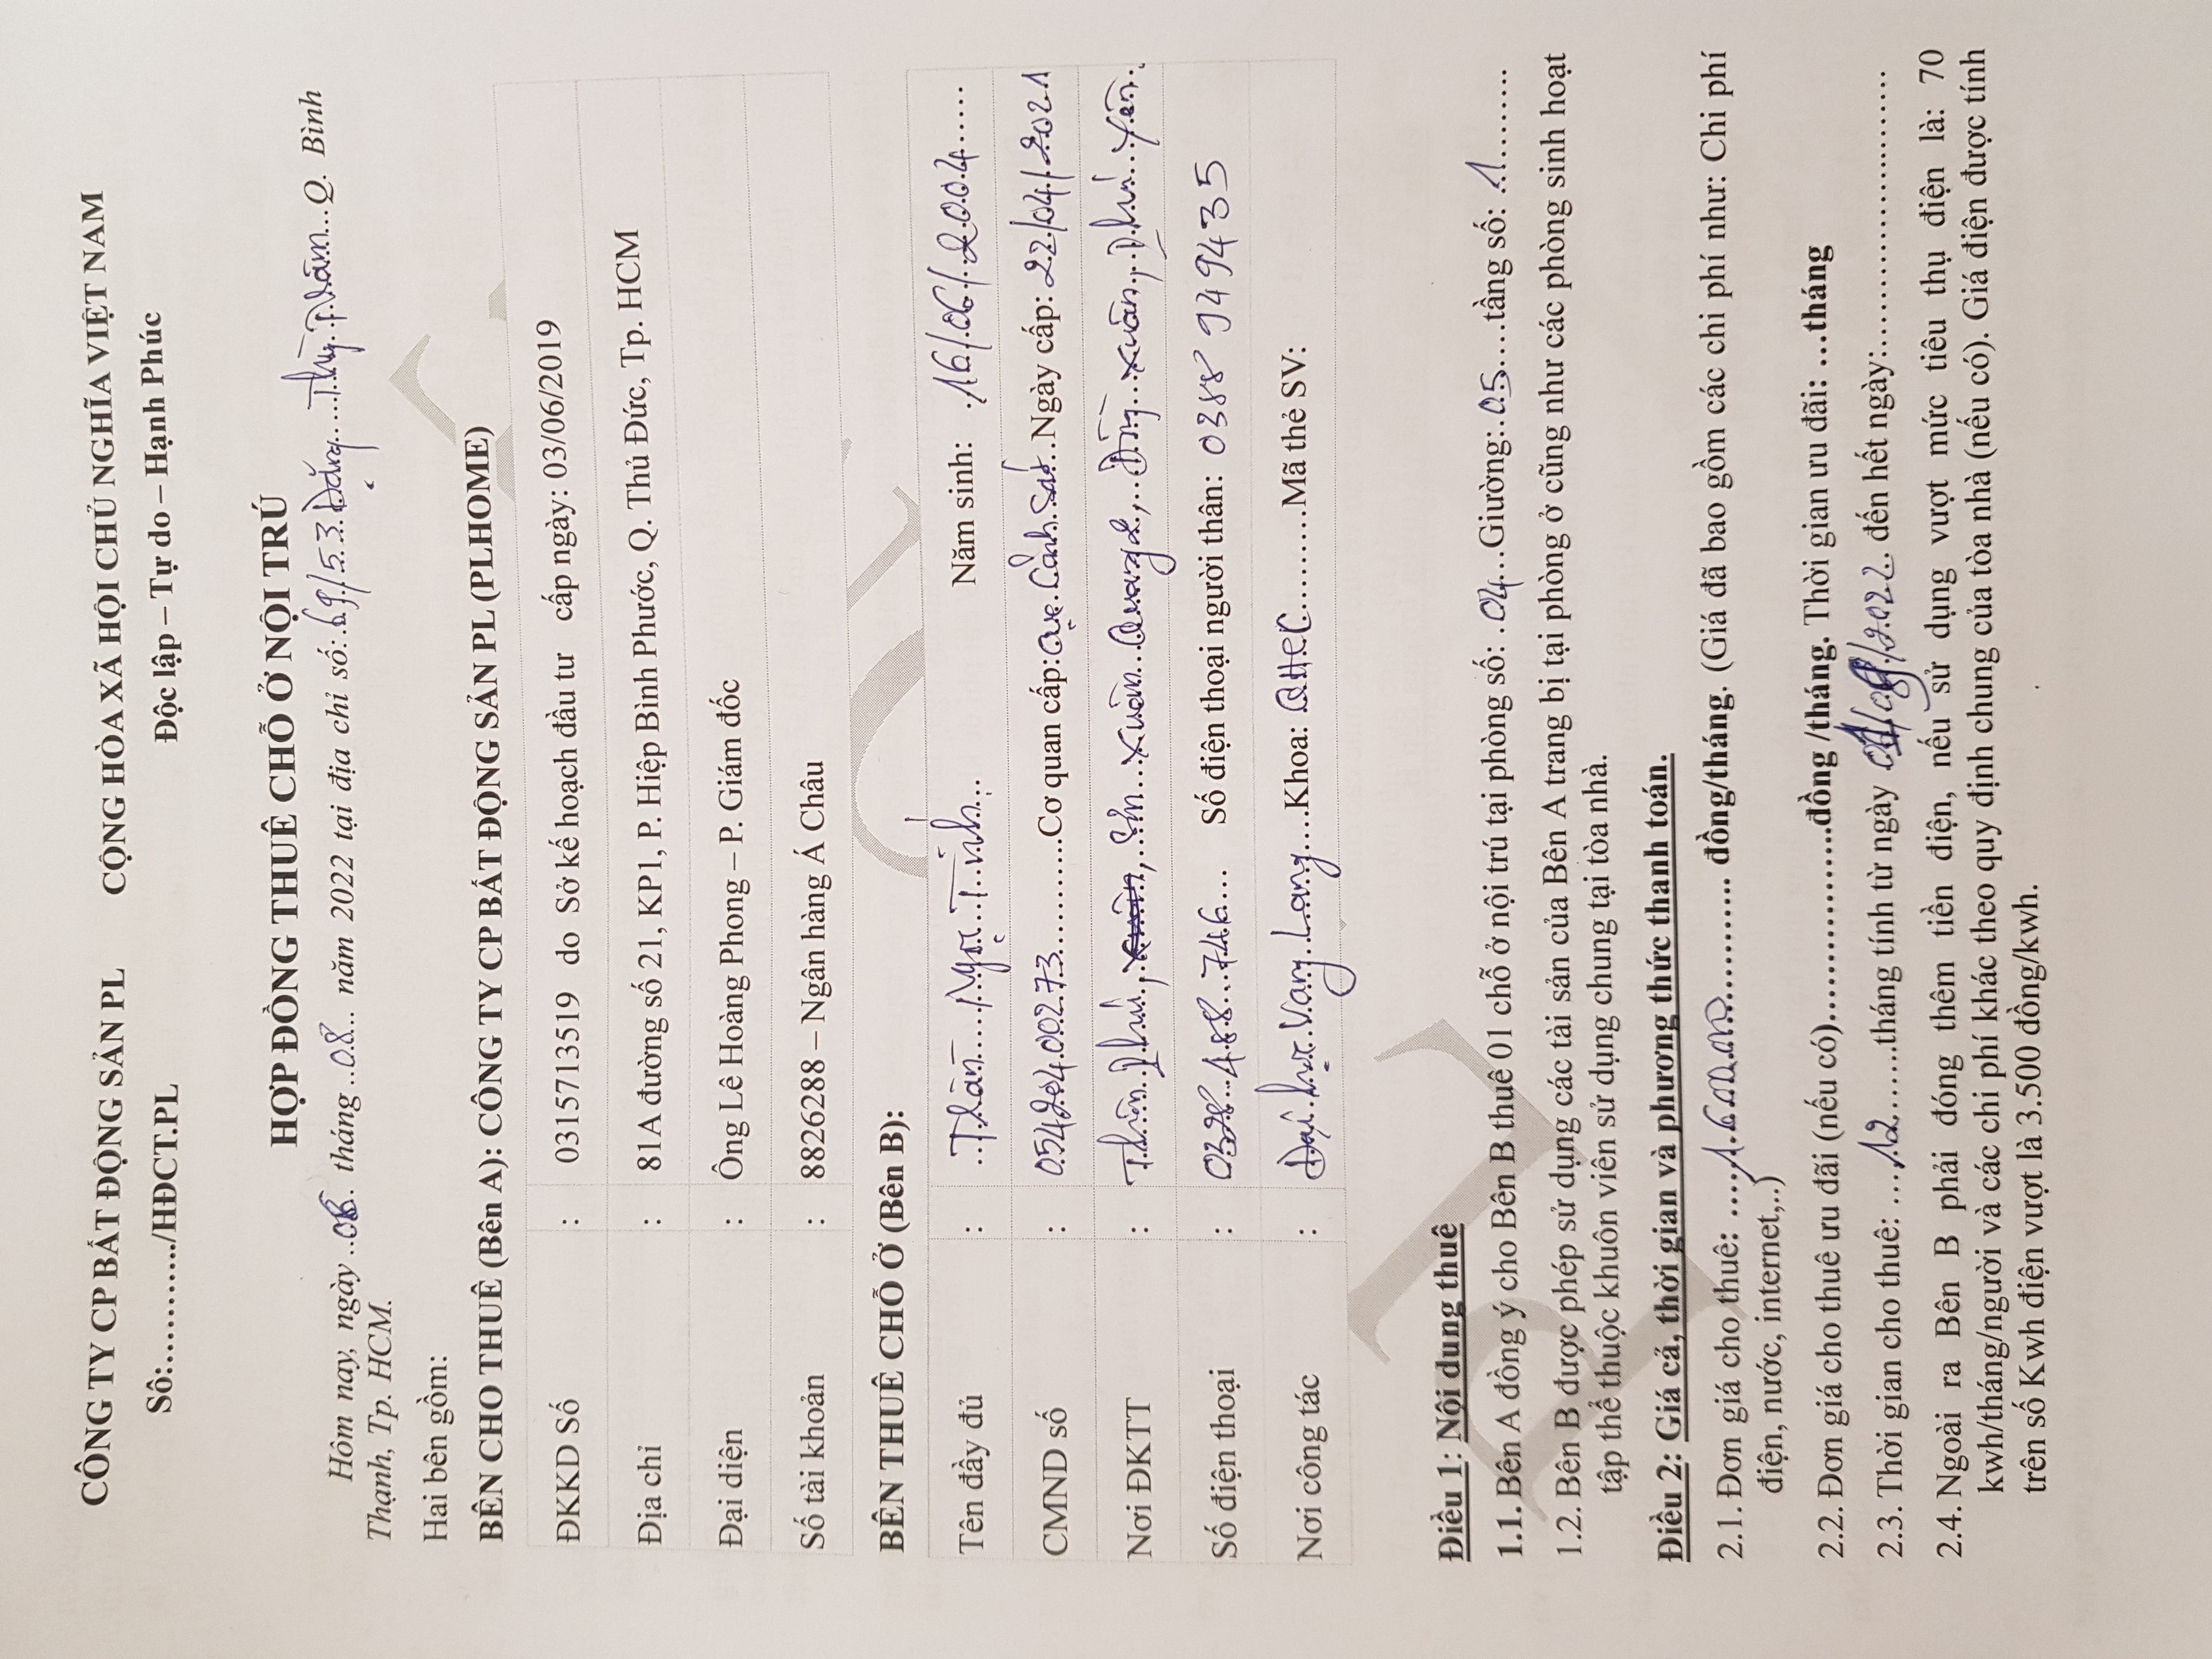 CÔNG TY CP BẤT ĐỘNG SẢN PL CỘNG HÒA XÃ HỘI CHỦ NGHĨA VIỆT NAM
Số:............/HĐCT.PL Độc lập – Tự do – Hạnh Phúc
HỢP ĐỒNG THUÊ CHỖ Ở NỘI TRÚ
Hôm nay, ngày ..08.. tháng ..08... năm 2022 tại địa chỉ số: 69/53 Đặng Thùy Trâm...Q. Bình
Thạnh, Tp. HCM.
Hai bên gồm:
BÊN CHO THUÊ (Bên A): CÔNG TY CP BẤT ĐỘNG SẢN PL (PLHOME)
ĐKKD Số : 0315713519 do Sở kế hoạch đầu tư cấp ngày: 03/06/2019
Địa chỉ : 81A đường số 21, KP1, P. Hiệp Bình Phước, Q. Thủ Đức, Tp. HCM
Đại diện : Ông Lê Hoàng Phong – P. Giám đốc
Số tài khoản : 8826288 – Ngân hàng Á Châu
BÊN THUÊ CHỖ Ở (Bên B):
Tên đầy đủ : Ngọc Tỉnh Năm sinh: 16/06/2004
CMND số : 054204000273 Cơ quan cấp: Cục Cảnh Sát Ngày cấp: 22/04/2021
Nơi ĐKTT : Xuân Quang 2, Đồng Xuân, Phú Yên
Số điện thoại : 0328 488 746 Số điện thoại người thân: 0388 949435
Nơi công tác : Đại học Văn Lang Khoa: QHCC Mã thẻ SV:
Điều 1: Nội dung thuê
1.1. Bên A đồng ý cho Bên B thuê 01 chỗ ở nội trú tại phòng số: 04 Giường: 05 tầng số: 1
1.2. Bên B được phép sử dụng các tài sản của Bên A trang bị tại phòng ở cũng như các phòng sinh hoạt
tập thể thuộc khuôn viên sử dụng chung tại tòa nhà.
Điều 2: Giá cả, thời gian và phương thức thanh toán.
2.1. Đơn giá cho thuê: 1.600.000 đồng/tháng. (Giá đã bao gồm các chi phí như: Chi phí
điện, nước, internet,..)
2.2. Đơn giá cho thuê ưu đãi (nếu có)....................đồng /tháng. Thời gian ưu đãi: ...tháng
2.3. Thời gian cho thuê: 12 tháng tính từ ngày /2022 đến hết ngày:...........................
2.4. Ngoài ra Bên B phải đóng thêm tiền điện, nếu sử dụng vượt mức tiêu thụ điện là: 70
kwh/tháng/người và các chi phí khác theo quy định chung của tòa nhà (nếu có). Giá điện được tính
trên số Kwh điện vượt là 3.500 đồng/kwh.